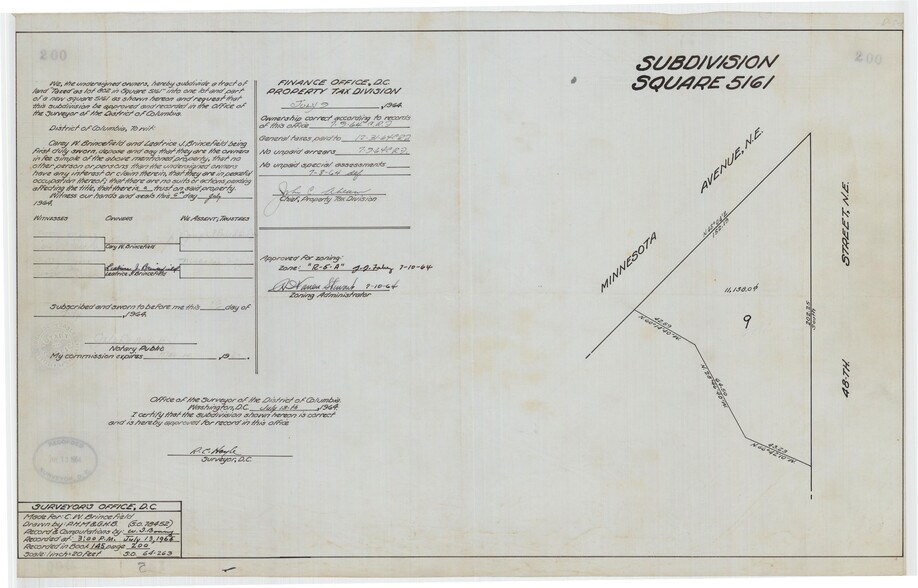 200
200
We, the undersigned owners, hereby subdivide a tract of
land Taxed as lot 802 in Square 5161 into one lot and part
of a new square 5161 as shown hereon and request that
this subdivision be approved and recorded in the Office of
the Surveyor of the District of Columbia.
District of Columbia, To wit:
Carey W. Brincefield and Leatrice J. Brincefield being
first duly sworn, depose and say that they are the owners
in fee simple of the above mentioned property, that no
other person or persons than the undersigned owners
have any interest or claim therein, that they are in peaceful
occupation thereof; that there are no suits or actions pending
affecting the title, that there is trust on said property.
Witness our hands and seals this day July
1964.
WITNESSES OWNERS WE ASSENT; TRUSTEES
Carey W. Brincefield
Leatrice J. Brincefield
Leatrice J. Brincefield
Subscribed and sworn to before me this day of
, 1964.
Notary Public
My commission expires , 19 .
FINANCE OFFICE, D.C.
PROPERTY TAX DIVISION
July 9 , 1964
Ownership correct according to records
of this office 7-9-64
General taxes paid to
No unpaid arrears
No unpaid special assessments
7-8-64
Chief, Property Tax Division
Approved for zoning:
Zone: "R-5-A" 7-10-64
7-10-64
Zoning Administrator
Office of the Surveyor of the District of Columbia.
Washington, D.C. July 13th , 1964
I certify that the subdivision shown hereon is correct
and is hereby approved for record in this office
Surveyor, D.C.
SURVEYOR'S OFFICE, D.C.
Made for: C.W. Brincefield
Drawn by: P.H.M & G.K.B. (S.O. 78452)
Record & Computations by:
Recorded at 3:00 P.M. July 13, 1964
Recorded in Book 145 page 200
Scale: 1 inch = 20 feet S.O. 64-263
SUBDIVISION
SQUARE 5161
MINNESOTA AVENUE, N.E.
11,138.0#
9
202.25
South
42.63
43.23
48-TH. STREET, N.E.